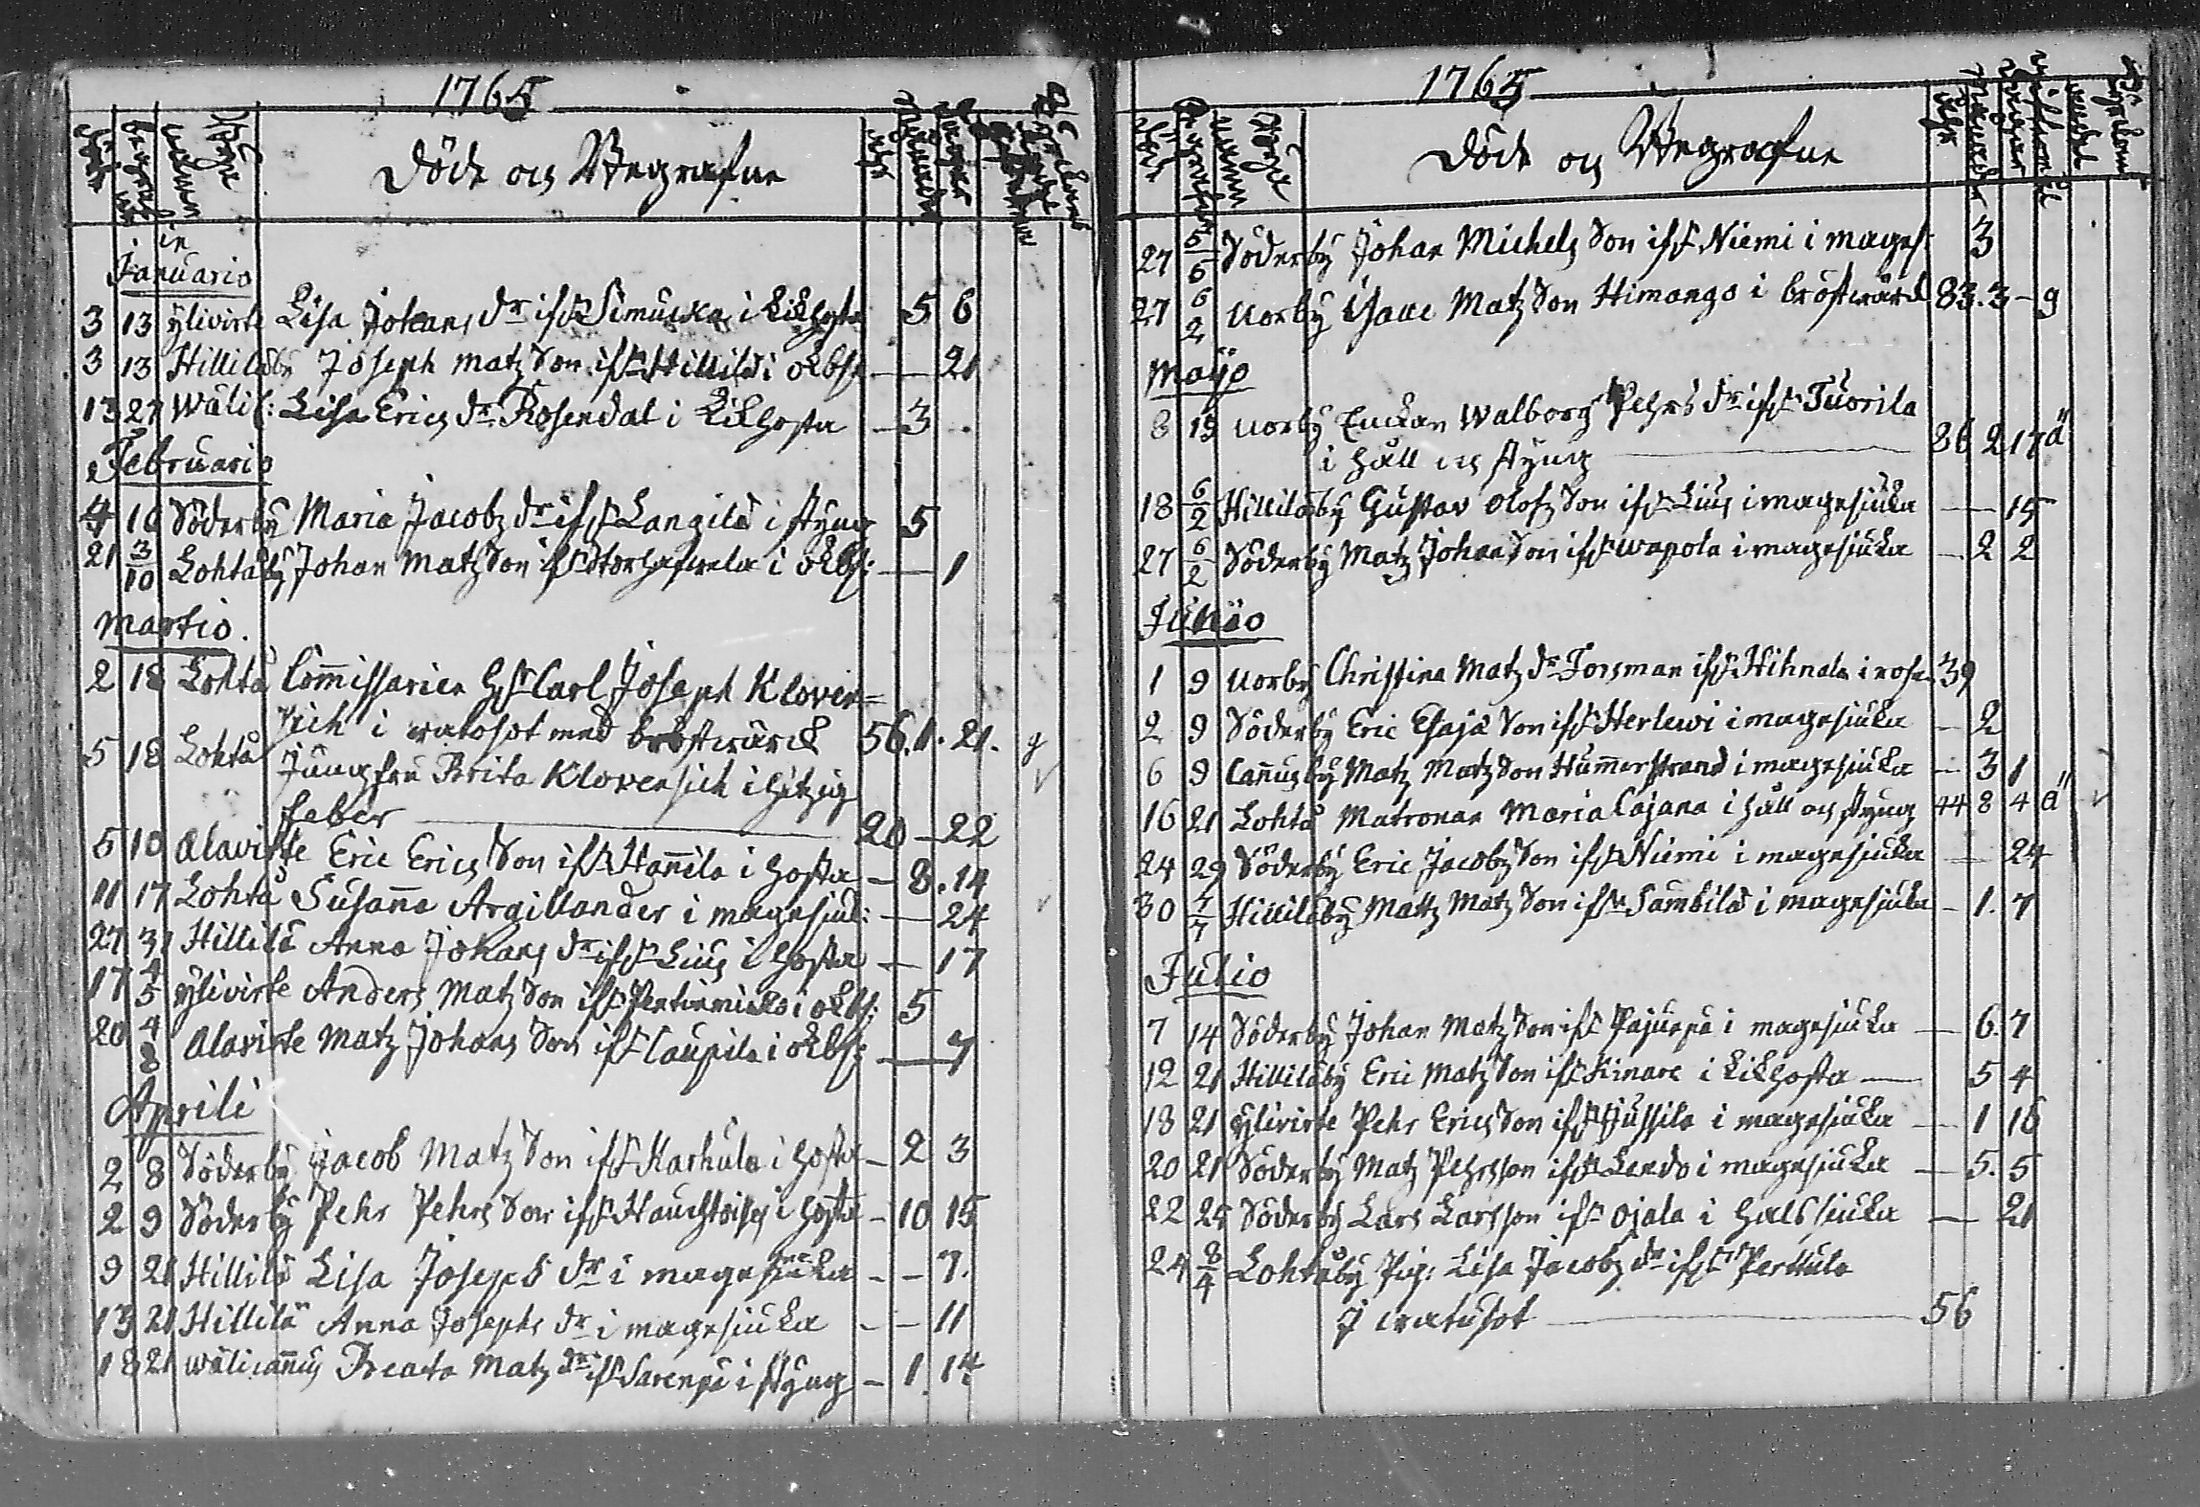 1765
Döde och Begrafne
in
Januario
3 13 ylivirte Lisa Johans dr ifr Simuna i Kikhosta 5 6
3 13 Hillilåby Joseph Matz Son ifr Hillilä i okbk — 21
13 27 Wälik: Lisa Erics dr Rosendal i Kikhosta — 3
Februario
4 10 Söderby Maria Jacobz dr ifr Langilä i styng 5
21 3/10 Lohtåby Johan Matz Son ifr i okbk: — 1
Martio.
2 18 Lohtå Commissarien Hr Carl Joseph Kloven=
sich i watosot med bröstwärck 56. 1. 21. g
5 18 Lohtå Jungfru Brita Klovensich i hitzig
feber — 20 — 22
5 10 alavirte Eric Erics Son ifr Hannila i hosta — 8. 14
11 17 Lohtå Susanna Argillander i magesiuk: — 24
27 31 Hillilä Anna Johans dr ifr Lius i hosta — 17
17 4/5 ylivirte Anders Matz Son ifr i okbk: 5
20 4/8 Alavirte Matz Johans Son ifr Caupila i okbk: — 7
Aprili
2 8 Söderby Jacob Matz Son ifr Karhula i hosta — 2 3
2 9 Söderby Pehr Pehrs Son ifr i hosta — 10 15
9 21 Hillilä Lisa Josephs dr i magesiuka — — 7.
13 21 Hillilä Anna Josephs dr i magesiuka — — 11
18 21 wälicannus Breata Matz dr ifr i styng — 1. 14
1765
Döde och Begrafne
27 5/5 Söderby Johan Michels Son ifr Niemi i mages: 3
27 6/2 Uorby Isaac Matz Son Himango i bröstwärck 83. 3 — g
Mayo
8 19 uorby Enckan Walborg Pehrs dr ifr Tuorila
i håll och styng — 86 2 17 ä
18 6/2 Hillilåby Gustav Olofz Son ifr Lius i magesiuka — 15
27 6/2 Söderby Matz Johan Son ifr wapola i magesiuka — 2 2
Junio
1 9 uorby Christina Matz dr Forsman ifr Hihnala i rosen 39
2 9 Söderby Eric Esajæ Son ifr Herlewi i magesiuka — 2
6 9 Cannusby Matz Matz Son Hummerstrand i magesiuka — 3 1
16 21 Lohtå Matronan Maria Cajana i håll och styng 44 8 4 ä
24 29 Söderby Eric Jacobz Son ifr Niemi i magesiuka — 24
30 7/7 Hillilåby Mattz Matz Son ifr Sambilä i magesiuka — 1. 7
Julio
7 14 Söderby Johan Matz Son ifr Pajunpä i magesiuka — 6. 7
12 21 Hillilåby Eric Matz Son ifr Kinare i Kikhosta — 5 4
18 21 ylivirte Pehr Erics Son ifr Jussila i magesiuka — 1 16
20 21 Söderby Matz Pehrsson ifr Lendo i magesiuka — 5. 5
22 25 Söderby Lars Larsson ifr Ojala i halssiuka — 21
24 8/4 Lohtåby Pig: Lisa Jacobz dr ifr Perttula
i watusot — 56